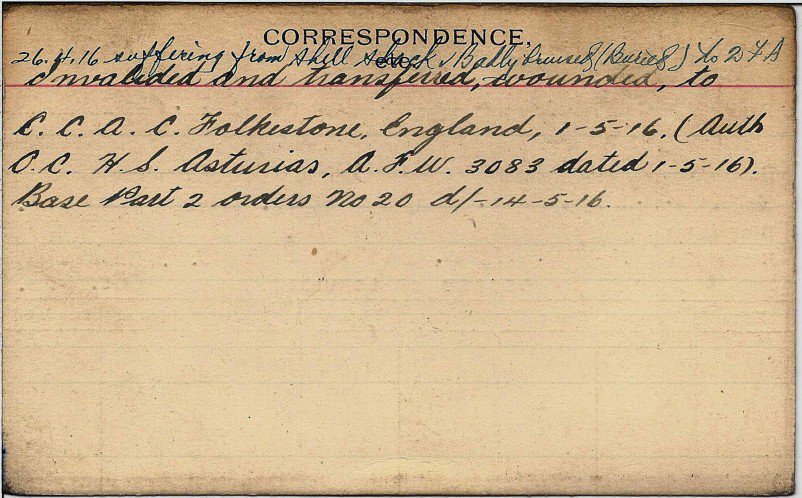 CORRESPONDENCE,
26.4.16 suffering from Shell Shock & Badly bruised (Buried) to 2 F A
Invalided and transferred, wounded, to
C. C. A. C. Folkestone, England, 1-5-16. (Auth
O.C. H.S. Asturias, A.F.W. 3083 dated 1-5-16).
Base Part 2 orders No 20 d/-14-5-16.